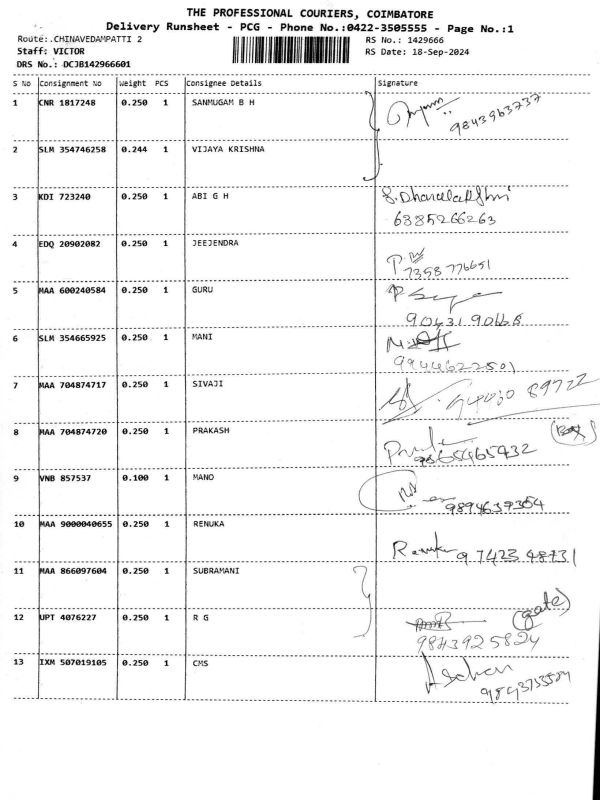 THE PROFESSIONAL COURIERS, COIMBATORE
Delivery Runsheet - PCG - Phone No.:0422-3505555 - Page No.:1
Route:.CHINAVEDAMPATTI 2 RS No.: 1429666
Staff: VICTOR RS Date: 18-Sep-2024
DRS No.: DCJB142966601
S No Consignment No Weight PCS Consignee Details Signature
1 CNR 1817248 0.250 1 SANMUGAM B H
9843963737
2 SLM 354746258 0.244 1 VIJAYA KRISHNA
3 KDI 723240 0.250 1 ABI G H
6385266263
4 EDQ 20902082 0.250 1 JEEJENDRA
7358 776651
5 MAA 600240584 0.250 1 GURU
6 SLM 354665925 0.250 1 MANI
9944622501
7 MAA 704874717 0.250 1 SIVAJI
94030 89722
8 MAA 704874720 0.250 1 PRAKASH
9865465432
9 VNB 857537 0.100 1 MANO
9894637364
10 MAA 9000040655 0.250 1 RENUKA
Renuka 97423 48731
11 MAA 866097604 0.250 1 SUBRAMANI
12 UPT 4076227 0.250 1 R G (gate)
9843925824
13 IXM 507019105 0.250 1 CMS
9843753584